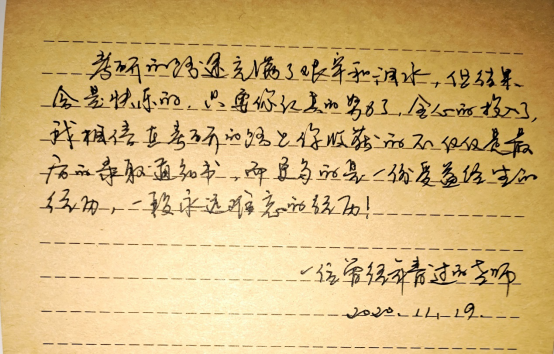 考研的路途充满了艰辛和泪水，但结果
会是快乐的，只要你认真的努力了，全心的投入了，
我相信在考研的路上你收获的不仅仅是最
后的录取通知书，而更多的是一份受益终生的
经历，一段永远难忘的经历！
一位曾经年青过的老师
2020.11.19.